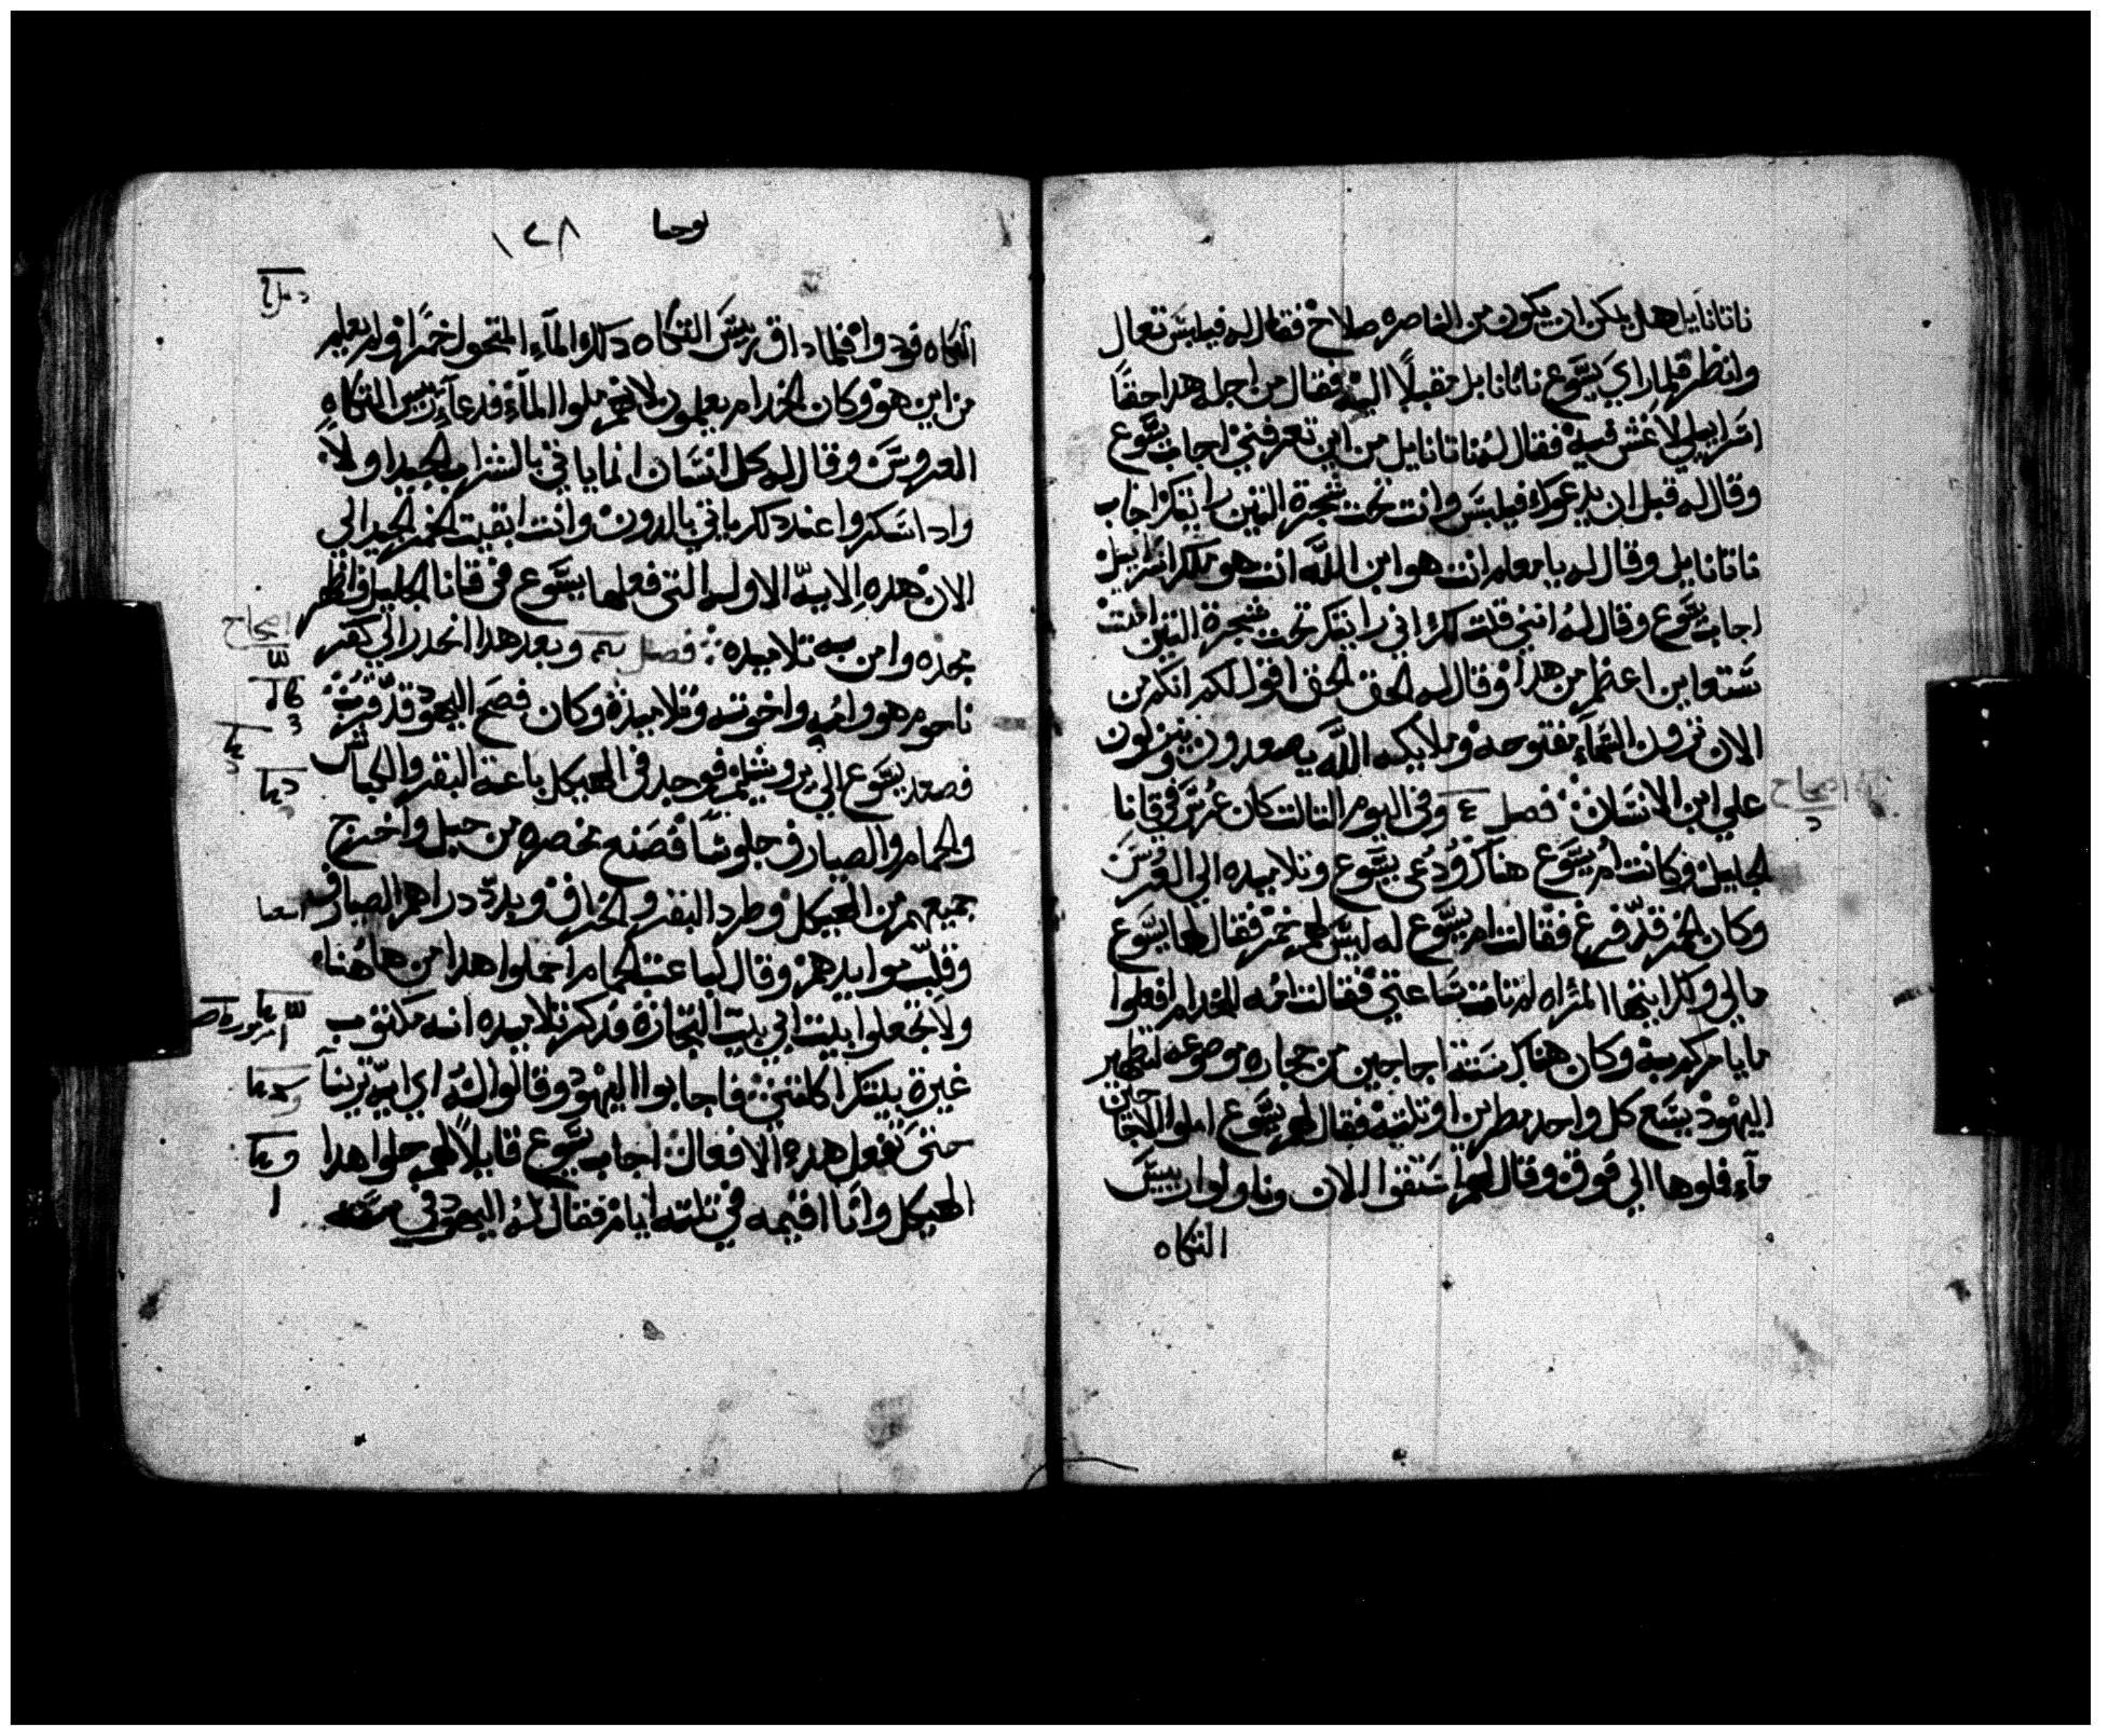 ناتانايل هل يمكن ان يكون من الناصره صلاح فقال له فيلبس تعال
وانظر فلما راي يسوع ناتانايل مقبلا اليه فقال من اجله هدا حقا
اسراييلي لا غش فيه فقال له ناتانايل من اين تعرفني اجاب يسوع
وقال له قبل ان يدعوك فيلبس وانت تحت شجرة التين رايتك اجاب
ناتانايل وقال له يا معلم انت هو ابن الله انت هو ملك اسراييل
اجاب يسوع وقال له انني قلت لك اني رايتك تحت شجرة التين امنت
ستعاين اعظم من هدا وقال له الحق الحق اقول لكم انكم من
الان ترون السماء مفتوحه وملايكه الله يصعدون وينزلون
علي ابن الانسان فصل ٤ وفي اليوم التالت كان عرس في قانا
اصحاح
الجليل وكانت ام يسوع هناك ودعي يسوع وتلاميده الي العرس
وكان الخمر قد فرغ فقالت ام يسوع له ليس لهم خمر فقال لها يسوع
مالي ولك ايتها المراه لم تات ساعتي فقالت امه للخدام افعلوا
ما يامركم به وكان هناك ستة اجاجين من حجاره موضوعه لتطهير
اليهود يسع كل واحد مطرين او تلتة فقال لهم يسوع املوا الاجاجين
ماء فملوها الي فوق وقال لهم استقوا الان وناولوا رييس
التكاه
يوحنا ١٢٨
التكاه فودوا فلما داق رييس التكاه دلك الماء المتحول خمرا ولم يعلم
من اين هو وكان الخدام يعلمون لانهم ملوا الماء فدعا رييس التكاه
العروس وقال له كل انسان انما ياتي بالشراب الجيد اولا
وادا سكروا عند دلك ياتي بالدون وانت ابقيت الخمر الجيد الي
الان هده الايه الاوله التي فعلها يسوع في قانا الجليل واظهر
اصحاح
مجده وامن به تلاميده فصل وبعد هدا انحدر الي كفر
ناحوم هو وامه واخوته وتلاميده وكان فصح اليهود قد قرب
فصعد يسوع الي يروشليم فوجد في الهيكل باعة البقر والكباش
والحمام والصيارف جلوسا فصنع مخصره من حبل واخرج
جميعهم من الهيكل وطرد البقر والخراف وبدد دراهم الصيارف
وقلب موايدهم وقال لباعة الحمام احملوا هدا من هاهنا
ولا تجعلوا بيت ابي بيت التجارة فدكر تلاميده انه مكتوب
غيرة بيتك اكلتني فاجابوا اليهود وقالوا له اي ايه ترينا
حتي تفعل هده الافعال اجاب يسوع قايلا لهم حلوا هدا
الهيكل وانا اقيمه في تلتة ايام فقال له اليهود في ستة